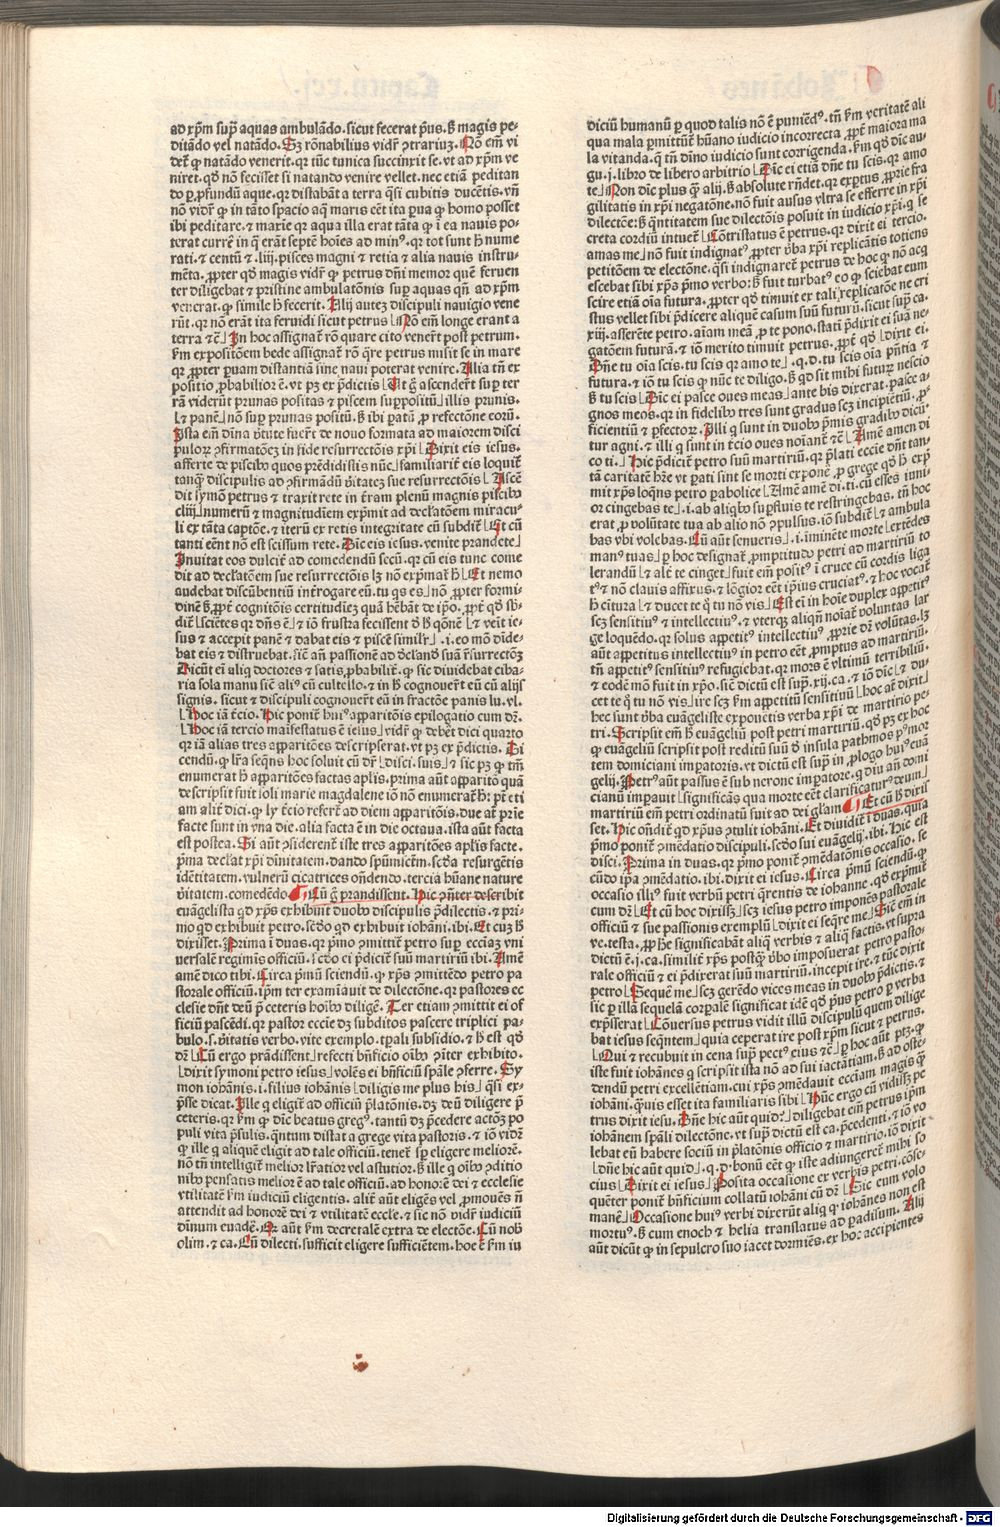 ad xp̄m sup̄ aquas ambulādo. sicut fecerat p̄us. ꝫ magis pe-
ditādo vel natādo. Sꝫ rōnabilius vidr̄ ꝯtrariuꝫ. Nō em̄ vi
det̄ ꝙ natādo venerit. qꝛ tūc tunica succinxit se. vt ad xp̄m ve
niret. qd̄ nō fecisset si natando venire vellet. nec etiā peditan
do ꝑ ꝓfundū aque. qꝛ distabāt a terra q̄si cubitis ducētis. vn̄
nō vidr̄ ꝙ in tāto spacio aq̄ maris eēt ita ꝑua ꝙ homo posset
ibi peditare. ⁊ maxīe qꝛ aqua illa erat tāta ꝙ ī ea nauis po-
terat curr̄e in q̄ erāt septē hoīes ad min⁹. qꝛ tot sunt h̄ nume
rati. ⁊ centū ⁊ .liij. pisces magni ⁊ retia ⁊ alia nauis instru-
mēta. ꝓpter qd̄ magis vidr̄ ꝙ petrus dn̄i memor quē feruen
ter diligebat ⁊ pristine ambulatōnis sup̄ aquas qn̄ ad xp̄m
venerat. ꝙ simile h̄ fecerit. Alij auteꝫ discipuli nauigio vene
rūt. qꝛ nō erāt ita feruidi sicut petrus Nō em̄ longe erant a
terra ⁊ cē In hoc assignat̄ rō quare cito vener̄t post petrum.
ẜm expositōem bede assignat̄ rō q̄re petrus misit se in mare
qꝛ ꝓpter ꝑuam distantiā sine naui poterat venire. Alia tn̄ ex
positio ꝓbabilior ē. vt pꝫ ex p̄dictis Ut g̊ ascender̄t sup̄ ter
rā viderūt prunas positas ⁊ piscem suppositū illis prunis.
⁊ panē nō sup̄ prunas positū. ꝫ ibi patā ꝓ refectōne eorū.
Ista em̄ diuīa v̄tute fuer̄t de nouo formata ad maiorem disci
puloꝝ ꝯfirmatōeꝫ in fide resurrectōis xp̄i Dixit eis iesus.
afferte de piscibꝫ quos prēdidistis nūc familiarit̄ eis loquit̄
tanq̄ discipulis ad ꝯfirmādū v̄itateꝫ sue resurrectōis Ascē
dit symō petrus ⁊ traxit rete in t̄ram plenū magnis piscibꝫ
cliij numerū ⁊ magnitudiem exp̄mit ad declatōem miracu-
li ex tāta captōe. ⁊ iterū ex retis integritate cū subdit̄ Et cū
tanti eēnt nō est scissum rete. Dic eis iesus. venite prandete
Inuitat eos dulcit̄ ad comedendū secū. qꝛ cū eis tunc come
dit ad declatōem sue resurrectōis lꝫ nō exp̄mat̄ h̄ Et nemo
audebat discūbentiū int̄rogare eū. tu qs es nō ꝓpter formi-
dinē ꝫ ꝓpt̄ cognitōis certitudieꝫ quā hēbāt de ip̄o. ꝓpt̄ qd̄ sb̄-
dit̄ scīetes qꝛ dn̄s ē ⁊ iō frustra fecissent d̄ h̄ q̄onē ⁊ venit ie-
sus ⁊ accepit panē ⁊ dabat eis ⁊ piscē simil̄r .i. eo mō dīde-
bat eis ⁊ distruebat. sic̄ an̄ passionē ad dclandā suā r̄surrectōꝫ
Dicūt em̄ aliq doctores ⁊ satis ꝓbabilit̄. ꝙ sic diuidebat ciba-
ria sola manu sic̄ ali⁹ cū cultello. ⁊ in h̄ cognouer̄t eū cū alijs
signis. sicut ⁊ discipuli cognouer̄t eū in fractōe panis lu. vl.
Hoc iā t̄cio. Hic ponit̄ hui⁹ apparitōis epilogatio cum dr̄.
Hoc iā tercio maīfestatus ē iesus vidr̄ ꝙ debet dici quarto
qꝛ iā alias tres apparitōes descripserat. vt pꝫ ex p̄dictis. Di
cendū. ꝙ lr̄a seq̄ns hoc soluit cū dr̄ disci. suis ⁊ sic pꝫ ꝙ tm̄
enumerat h̄ apparitōes factas aplis. prima aūt apparitō quā
descripsit fuit soli marie magdalene iō nō enumerat̄ h̄. pt̄ eti
am alit̄ dici. ꝙ ly t̄cio refert̄ ad diem apparitōis. due at̄ prīe
facte sunt in vna die. alia facta ē in die octaua. ista aūt facta
est postea. Si aūt ꝯsiderent̄ iste tres apparitōes aplis facte.
p̄ma declat xp̄i diuīnitatem. dando spūmsctm̄. scd̄a resurgētis
idētitatem. vulnerū cicatrices on̄dendo. tercia hūane nature
v̄itatem. comedēdo. Cū g̊ prandissent. Hic ꝯn̄ter describit
euāgelista qd̄ xp̄s exhibuit duobꝫ discipulis p̄dilectis. ⁊ pri-
mo qd̄ exhibuit petro. scd̄o qd̄ exhibuit iohāni. ibi. Et cuꝫ h̄
dixisset. Prima ī duas. qꝛ p̄mo ꝯmittit̄ petro sup̄ eccl̄iaꝫ vni
uersalē regimīs officiū. scd̄o ei p̄dicit̄ suū martiriū ibi. Amē
amē dico tibi. Circa p̄mū sciendū. ꝙ xp̄s ꝯmittēdo petro pa
storale officiū. ip̄m ter examīauit de dilectōne. qꝛ pastores ec
clesie dn̄t deū p̄ ceteris hoībꝫ diligē. Ter etiam ꝯmittit ei of
ficiū pascēdi. qꝛ pastor eccl̄ie dꝫ subditos pascere triplici pa-
bulo. s. v̄itatis verbo. vite exemplo. tꝑali subsidio. ⁊ h̄ est qd̄
dr̄ Cū ergo prādissent refecti bn̄ficio oībꝫ ꝯiter exhibito.
dixit symoni petro iesus volēs ei bn̄ficiū sp̄ale ꝯferre. Sy
mon iohānis .i. filius iohānis diligis me plus his q̄si ex-
p̄sse dicat. Ille ꝙ eligit̄ ad officiū p̄latōnis. dꝫ deū diligere p̄
ceteris. qꝛ ẜm ꝙ dic̄ beatus greg⁹. tantū dꝫ p̄cedere actōꝫ po
puli vita p̄sulis. q̄ntum distat a grege vita pastoris. ⁊ iō vidr̄
ꝙ ille q̄ aliquē eligit ad tale officiū. tenet̄ sp̄ eligere meliorē.
nō tn̄ intelligit̄ melior lr̄atior vel astutior. ꝫ ille q̄ oībꝫ ꝯditio
nibꝫ pensatis melior ē ad tale officiū. ad honorē dei ⁊ ecclesie
vtilitatē ẜm iudiciū eligentis. alit̄ aūt eligēs vel ꝓmouēs n̄
attendit ad honorē dei ⁊ vtilitatē eccl̄e. ⁊ sic nō vidr̄ iudiciū
diuīnum euadē. Qꝛ aūt ẜm decretalē extra de electōe. Cū nob̄
olim. ⁊ ca. Cū dilecti. sufficit eligere sufficiētem. hoc ē ẜm iu
diciū humanū ꝑ quod talis nō ē puniēd⁹. tn̄ ẜm veritatē ali
qua mala ꝑmittūt̄ hūano iudicio incorrecta ꝓpt̄ maiora ma
la vitanda. q̄ tn̄ diuīo iudicio sunt corrigenda. ẜm qd̄ dic̄ au-
gu. j. libro de libero arbitrio Dic ei etiā dn̄e tu scis. qꝛ amo
te Non dic̄ plus q̄ alij. ꝫ absolute rn̄det. qꝛ exꝑtus ꝓprie fra
gilitatis in xp̄i negatōne. nō fuit ausus vltra se efferre in xp̄i
dilectōe. ꝫ q̄ntitatem sue dilectōis posuit in iudicio xp̄i. q̄ se
creta cordiū intuet̄ Cōtristatus ē petrus. qꝛ dixit ei tercio.
amas me nō fuit indignat⁹ ꝓpter v̄ba xp̄i replicātis totiens
petitōem de electōne. q̄si indignaret̄ petrus de hoc ꝙ nō acq̄
escebat sibi xp̄s p̄mo verbo. ꝫ fuit turbat⁹ eo ꝙ sciebat eum
scire etiā oīa futura. ꝓpter qd̄ timuit ex tali replicatōe ne cri
stus vellet sibi p̄dicere aliquē casum suū futurū. sicut sup̄ ca.
xiij. asserēte petro. aīam meā ꝓ te pono. statī p̄dixit ei suā ne-
gatōem futurā. ⁊ iō merito timuit petrus. ꝓpt̄ qd̄ dixit ei.
Dn̄e tu oīa scis. tu scis qꝛ amo te .q.d. tu scis oīa pn̄tia ⁊
futura. ⁊ iō tu scis ꝙ nūc te diligo. ꝫ qd̄ sit mihi futuꝝ nescio
ꝫ tu scis Dic ei pasce oues meas ante bis dixerat. pasce a-
gnos meos. qꝛ in fidelibꝫ tres sunt gradus scꝫ incipiētiū. ꝓ-
ficientiū ⁊ ꝑfectoꝝ. Illi q̄ sunt in duobꝫ p̄mis gradibꝫ dicū-
tur agni. ⁊ illi q̄ sunt in t̄cio oues noīant̄ ⁊ē Amē amen di
co ti. Hic p̄dicit̄ petro suū martiriū. qꝛ p̄lati eccl̄ie dn̄t tan-
tā caritatē hr̄e vt ꝑati sint se morti exponē ꝓ grege qd̄ h̄ exp̄
mit xp̄s loq̄ns petro ꝑabolice Amē amē di. ti. cū esses iuni
or cingebas te .i. ab aliqbꝫ suꝑfluis te restringebas. tn̄ hoc
erat ꝓ volūtate tua ab alio nō ꝯpulsus. iō subdit̄ ⁊ ambula
bas vbi volebas. Cū aūt senueris .i. iminēte morte extēdes
man⁹ tuas ꝑ hoc designat̄ ꝓmptitudo petri ad martiriū to
lerandū ⁊ ali⁹ te cinget fuit em̄ posit⁹ ī cruce cū cordis liga
t⁹ ⁊ nō clauis affixus. ⁊ lōgior eēt ip̄ius cruciat⁹. ⁊ hoc vocat̄
h̄ cīctura ⁊ ducet te q̊ tu nō vis Est em̄ in hoīe duplex appetit⁹
scꝫ sensitiu⁹ ⁊ intellectiu⁹. ⁊ vterqꝫ aliqn̄ noīat̄ voluntas lar
ge loquēdo. qꝛ solus appetit⁹ intellectiu⁹ ꝓprie dr̄ volūtas. lꝫ
aūt appetitus intellectiu⁹ in petro eēt ꝓmptus ad martiriū.
tn̄ appetit⁹ sensitiu⁹ refugiebat. qꝛ mors ē vltimū terribiliū.
⁊ eodē mō fuit in xp̄o. sic̄ dictū est sup̄. xij. ca. ⁊ iō dic̄ ⁊ du-
cet te q̊ tu nō vis ire scꝫ ẜm appetitū sensitiuū hoc at̄ dixit
hec sunt v̄ba euāgeliste exponētis verba xp̄i de martirio pe-
tri. Scripsit em̄ h̄ euāgeliū post petri martiriū. qd̄ pꝫ ex hoc
ꝙ euāgeliū scripsit post reditū suū d̄ insula pathmos p⁹ mor
tem domiciani imꝑatoris. vt dictū est sup̄ in ꝓlogo hui⁹ euā
gelij. Petr⁹ aūt passus ē sub nerone imꝑatore. q̄ diu an̄ domi
cianū imꝑauit significās qua morte eēt clarificatur⁹ deum
martiriū em̄ petri ordinatū fuit ad dei gl̄am Et cū h̄ dixis
set. Hic on̄dit̄ qd̄ xp̄us ꝯtulit iohāni. Et diuidit̄ ī duas. quia
p̄mo ponit̄ ꝯmēdatio discipuli. scd̄o sui euāgelij. ibi. Hic est
disci. Prima in duas. qꝛ p̄mo ponit̄ ꝯmēdatōnis occasio. se
cūdo ip̄a ꝯmēdatio. ibi. dixit ei iesus. Circa p̄mū sciendū. ꝙ
occasio illi⁹ fuit verbū petri q̄rentis de iohanne. qd̄ exp̄mit̄
cum dr̄ Et cū hoc dixissꝫ scꝫ iesus petro imponēs pastorale
officiū ⁊ sue passionis exemplū dixit ei seq̄re me Sic̄ em̄ in
ve. testa. ꝓpḣe significabāt aliq̄ verbis ⁊ aliq̄ factis. vt supra
dictū ē .j. ca. similit̄ xp̄s postq̄ v̄bo imposuerat petro pasto-
rale officiū ⁊ ei p̄dixerat suū martiriū. incepit ire. ⁊ tūc dixit
petro Sequē me scꝫ gerēdo vices meas in duobꝫ p̄dictis. ⁊
sic ꝑ illā sequelā corꝑalē significat idē qd̄ p̄us petro ꝑ verba
exp̄sserat Cōuersus petrus vidit illū discipulū quem dilige
bat iesus seq̄ntem quia ceperat ire post xp̄m sicut ⁊ petrus.
Qui ⁊ recubuit in cena sup̄ pect⁹ eius ⁊ cē ꝑ hoc aūt pꝫ. ꝙ
iste fuit iohānes q̄ scripsit ista nō ad sui iactātiam. ꝫ ad oste-
dendū petri excellētiam. cui xp̄s ꝯmēdauit eccl̄iam magis q̄
iohāni. q̄uis esset ita familiaris sibi Hūc ergo cū vidissꝫ pe
trus dixit iesu. Dn̄e hic aūt quid? diligebat em̄ petrus ip̄m
iohānem sp̄ali dilectōne. vt sup̄ dictū est ca. p̄cedenti. ⁊ iō vo
lebat eū habere sociū in p̄latōnis officio ⁊ martirio. iō dixit
dn̄e hic aūt quid .q.d. bonū eēt ꝙ iste adiungeret̄ mihi so
cius Dixit ei iesus Posita occasione ex verbis petri. cōse-
quēter ponit̄ bn̄ficium collatū iohāni cū dr̄ Sic eum volo
manē Occasione hui⁹ verbi dixerūt aliq̄ ꝙ iohānes non est
mortu⁹. ꝫ cum enoch ⁊ helia translatus ad ꝑadisum. Alij
aūt dicūt ꝙ in sepulcro suo iacet dormiēs. ex hoc accipientes
Digitalisierung gefördert durch die Deutsche Forschungsgemeinschaft - DFG